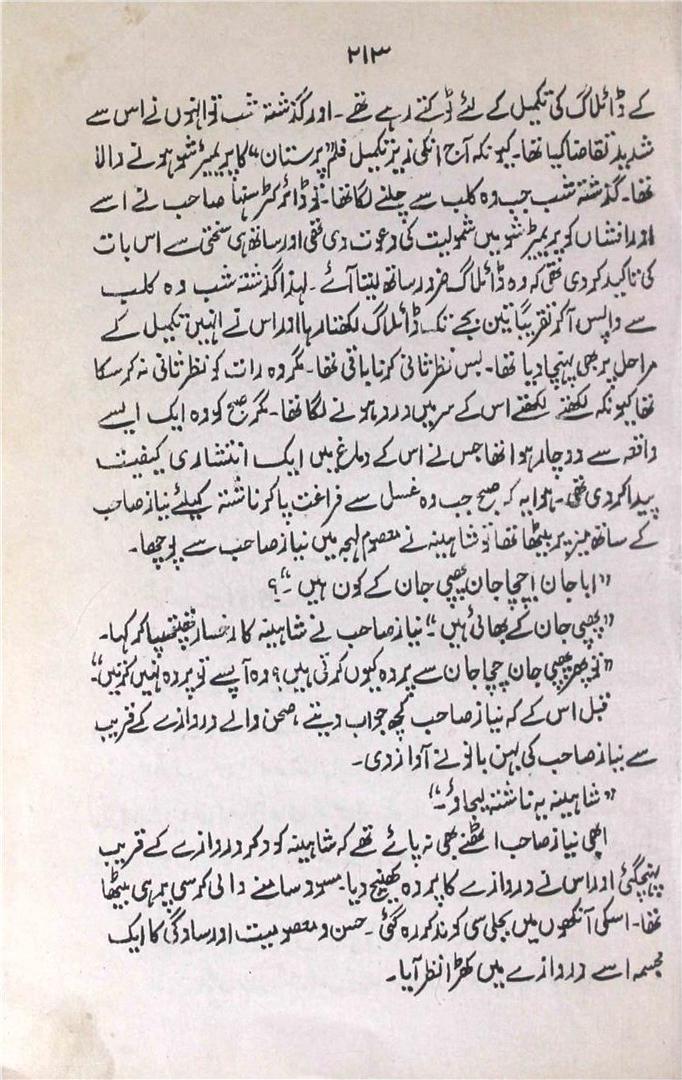 ۲۱۳
کے ڈائلاگ کی تکمیل کے لئے ٹوکتے رہے تھے۔ اور گذشتہ شب تو انہوں نے اس سے
شدید تقاضا کیا تھا۔ کیونکہ آج انکی زیر تکمیل فلم ”پرستان“ کا پریمیئر شو ہونے والا
تھا۔ گذشتہ شب جب وہ کلب سے چلنے لگا تھا۔ تو ڈائرکٹر سنہا صاحب نے اسے
اور افشاں کو پریمیئر شو میں شمولیت کی دعوت دی تھی اور ساتھ ہی سختی سے اس بات
کی تاکید کر دی تھی کہ وہ ڈائلاگ ضرور ساتھ لیتا آئے۔ لہذا گذشتہ شب وہ کلب
سے واپس آکر تقریباً تین بجے تک ڈائلاگ لکھتا رہا اور اس نے انہیں تکمیل کے
مراحل پر بھی پہنچا دیا تھا۔ بس نظر ثانی کرنا باقی تھا۔ مگر وہ رات کو نظر ثانی نہ کر سکا
تھا کیونکہ لکھتے لکھتے اس کے سر میں درد ہونے لگا تھا۔ مگر صبح کو وہ ایک ایسے
واقعہ سے دوچار ہوا تھا جس نے اس کے دماغ میں ایک انتشاری کیفیت
پیدا کر دی تھی۔ ہوا یہ کہ صبح جب وہ غسل سے فراغت پاکر ناشتہ کیلئے نیاز صاحب
کے ساتھ میز پر بیٹھا تھا تو شاہینہ نے معصوم لہجہ میں نیاز صاحب سے پوچھا۔
”ابا جان! چچا جان پھپی جان کے کون ہیں۔“؟
”پھپی جان کے بھائی ہیں۔“ نیاز صاحب نے شاہینہ کا رخسار تھپتھپا کر کہا۔
”تو پھر پھپی جان چچا جان سے پردہ کیوں کرتی ہیں؟ وہ آپ سے تو پردہ نہیں کرتیں۔“
قبل اس کے کہ نیاز صاحب کچھ جواب دیتے، صحن والے دروازے کے قریب
سے نیاز صاحب کی بہن بانو نے آواز دی۔
”شاہینہ یہ ناشتہ لیجاؤ۔“
ابھی نیاز صاحب اٹھنے بھی نہ پائے تھے کہ شاہینہ کود کر دروازے کے قریب
پہنچ گئی اور اس نے دروازے کا پردہ کھینچ دیا۔ سامنے والی کرسی پر ہی بیٹھا
تھا۔ اسکی آنکھوں میں بجلی سی کوند کر رہ گئی۔ حسن و معصومیت اور سادگی کا ایک
مجسمہ اسے دروازے میں کھڑا نظر آیا۔